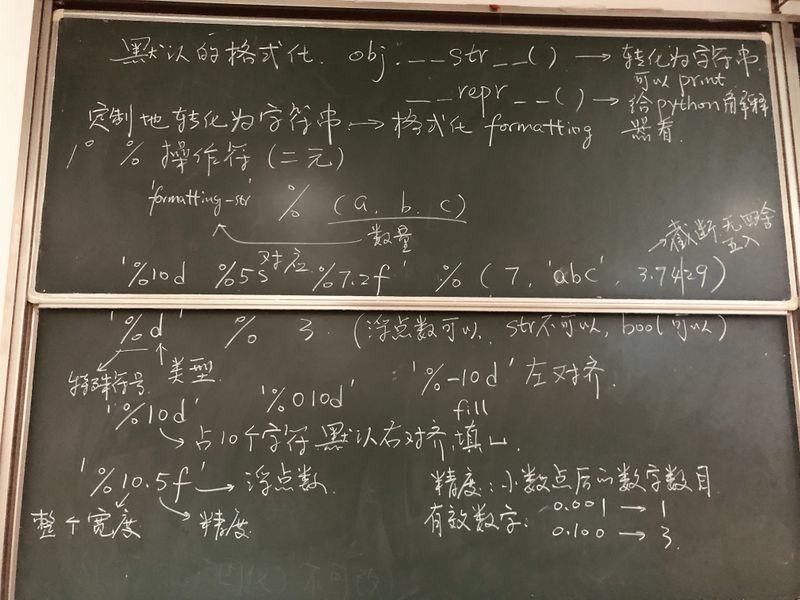 默认的格式化. obj.__str__() → 转化为字符串.
可以 print
__repr__() → 给python解释器看.
定制地转化为字符串. → 格式化 formatting
1° % 操作符 (二元)
'formatting-str' % (a, b, c)
对应 数量
'%10d %5s %7.2f' % (7, 'abc', 3.7429) → 截断 无四舍五入
'%d' % 3. (浮点数可以, str不可以, bool可以)
特殊符号 类型.
'%10d' '%010d' '%-10d' 左对齐.
fill
占10个字符 默认右对齐, 填␣.
'%10.5f' → 浮点数.
整个宽度 精度.
精度: 小数点后的数字数目.
有效数字: 0.001 → 1
0.100 → 3.